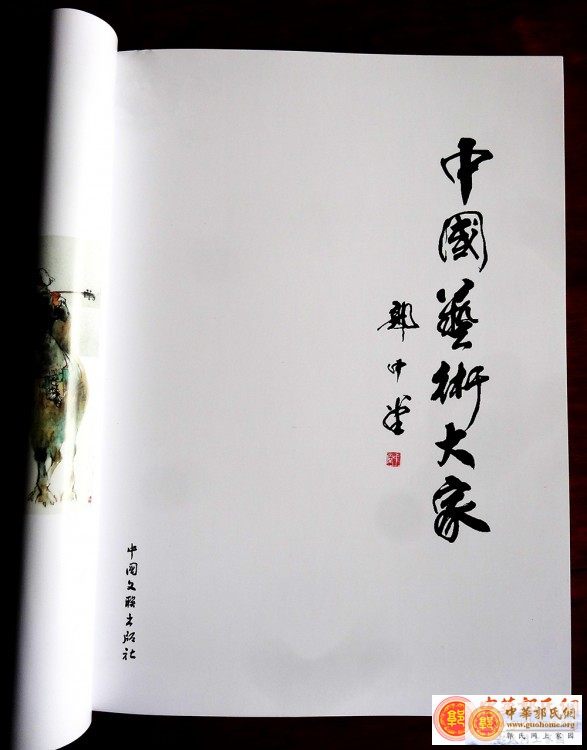 中國藝術大家
郭中堂
中国文联出版社
中華郭氏網
www.guohome.org
郭氏网上家园